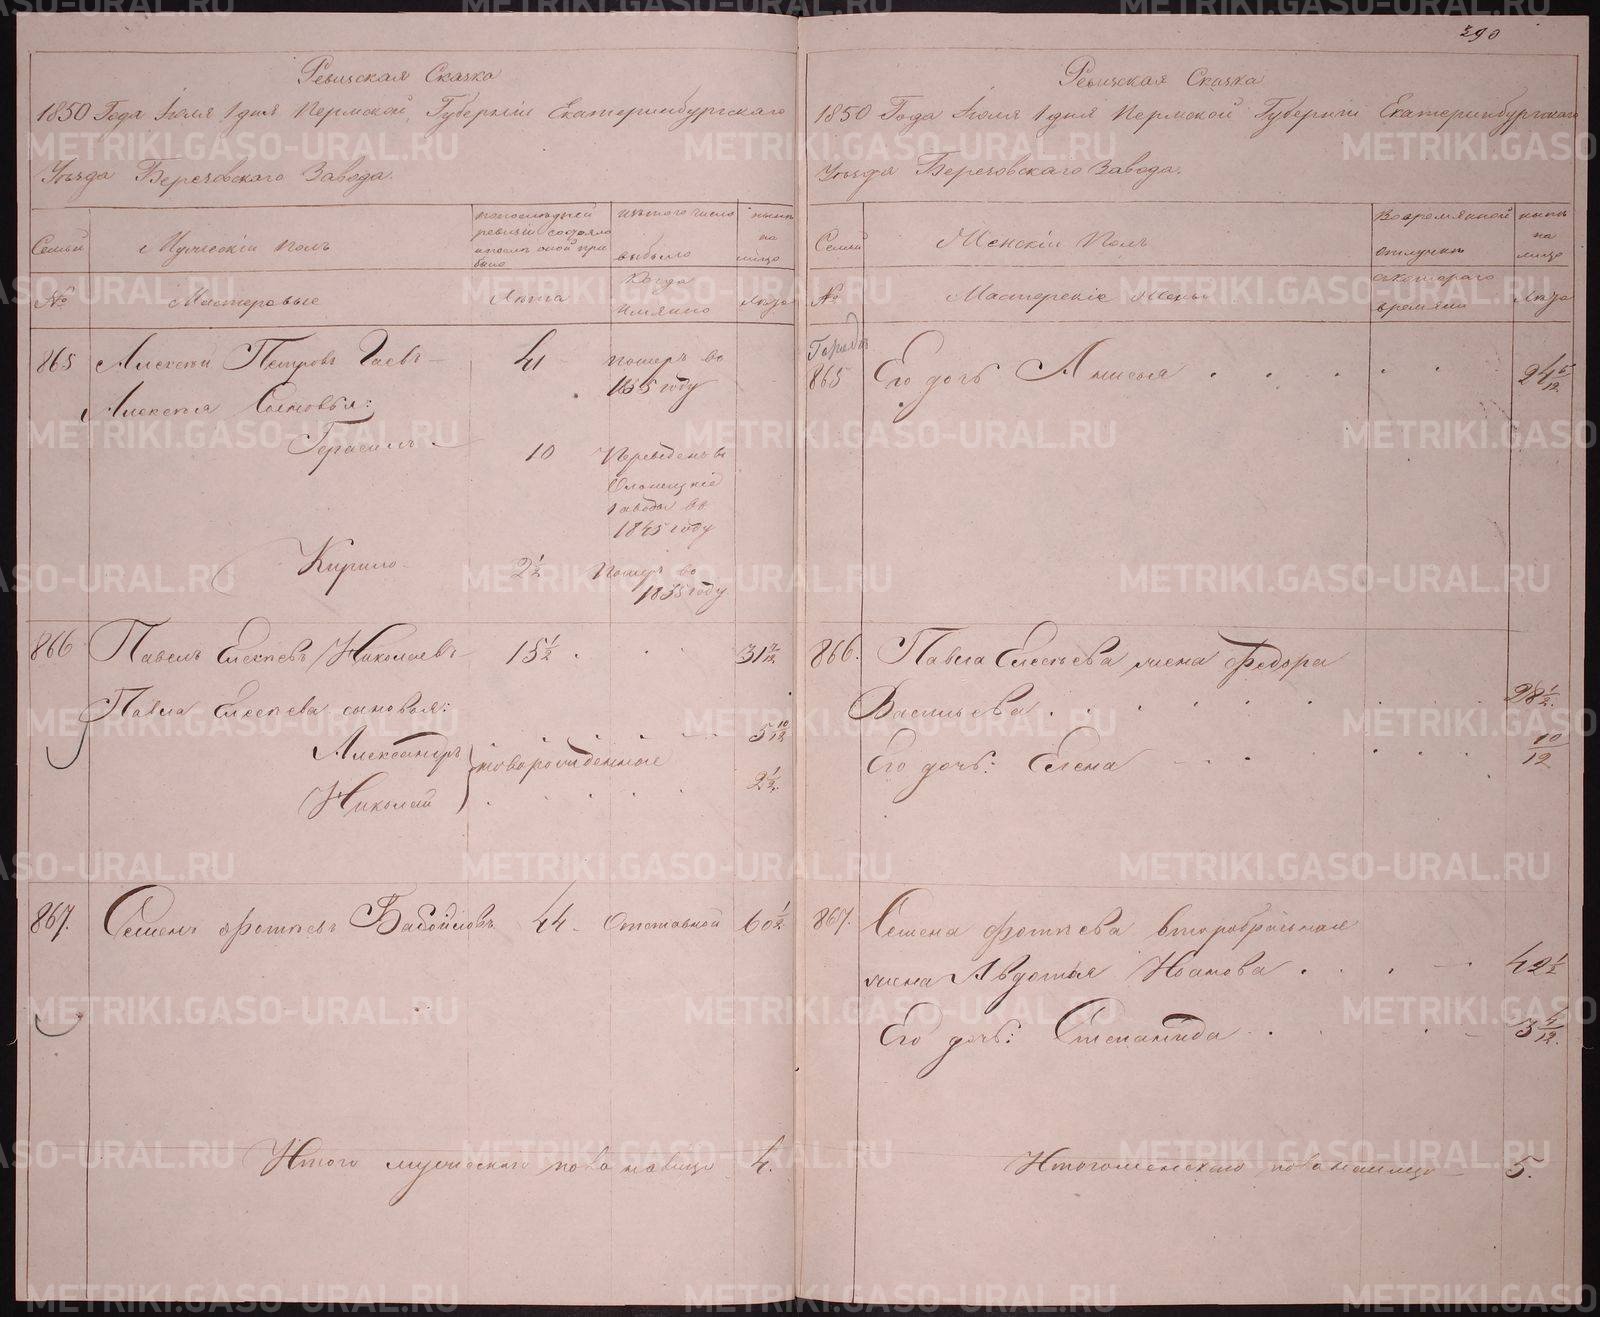 290
Ревижская Сказка
1850 Года Іюля 1 дня Пермской Губерніи Екатеринбургскаго
Уѣзда Березовскаго Завода.
Семьи
Мужескій Полъ
по последней
ревизіи состояло
и послѣ оной при
было
изъ того числа
выбыло
нынѣ
на
лицо
№
Мастеровые
Лѣта
Когда
имянно
Лѣта
865 Алексѣй Петровъ Гаевъ 41 померъ во
1835 году
Алексѣя Сыновья:
Герасимъ 10 Переведенъ въ
Олонецкіе
заводы во
1845 году
Кирило 2½ померъ во
1835 году
866 Павелъ Елисѣевъ Николаевъ 15½ 31 6/12
Павла Елисѣева сыновья:
Александръ 5 10/12
новорожденные
Николай 2½
867. Семенъ Фотіевъ 44 Отставной 60½
Итого мужескаго пола налицо 4.
Ревижская Сказка
1850 Года Іюля 1 дня Пермской Губерніи Екатеринбургскаго
Уѣзда Березовскаго Завода.
Семьи
Женскій Полъ
Во временной
отлучкѣ
нынѣ
на
лицо
№
Мастерскіе Жены
скотораго
времяни
Лѣта
865 Его дочь Анисья 24 6/12
866. Павла Елисѣева жена Федора
Васильева 28½
Его дочь: Елена 10/12
867. Семена Фотіева второбрачная
жена Авдотья Иванова 42½
Его дочь: Степанида 3 4/12
Итого женскаго пола налицо 5.
METRIKI.GASO-URAL.RU